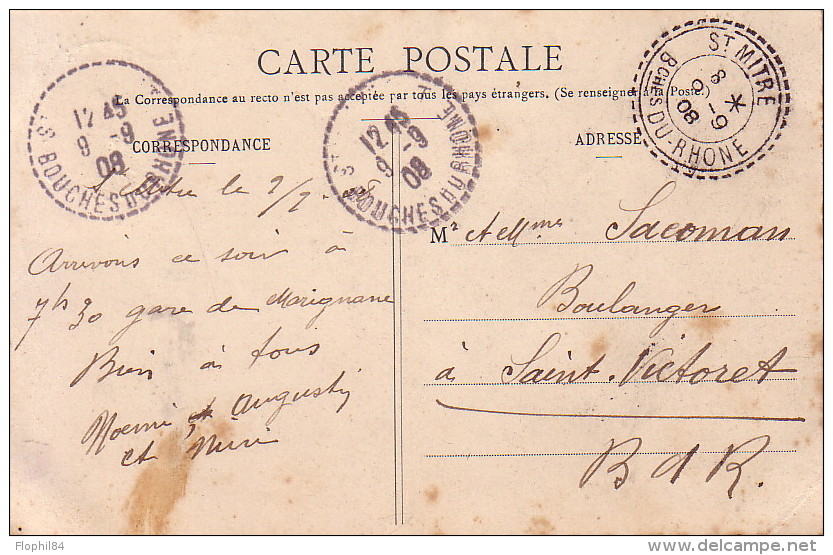 CARTE POSTALE
La Correspondance au recto n'est pas acceptée par tous les pays étrangers. (Se renseigner à la Poste.)
CORRESPONDANCE
ADRESSE
12 45
9 -9
08
BOUCHES DU RHONE
12 45
9 -9
08
BOUCHES DU RHONE
ST MITRE
8
9-9
08
BCHES DU-RHONE
St Mitre le 9/9
Arrivons ce soir à
7h 30 gare de Marignane
Bien à tous
Noemi et Augustin
et Mimi
Mr et Mme Sacoman
Boulanger
à Saint-Victoret
B d R.
Flophil84
www.delcampe.net